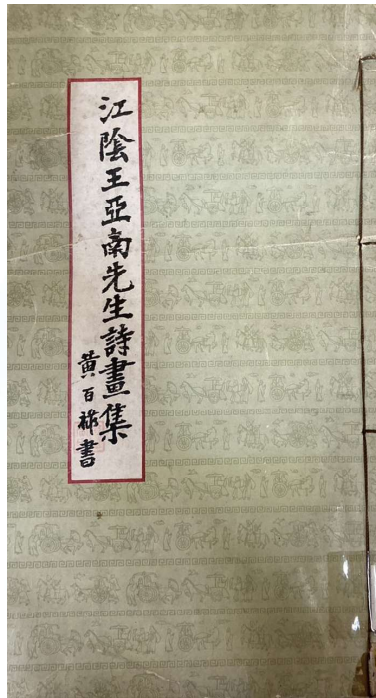 江陰王亞南先生詩畫集
黃百祿書